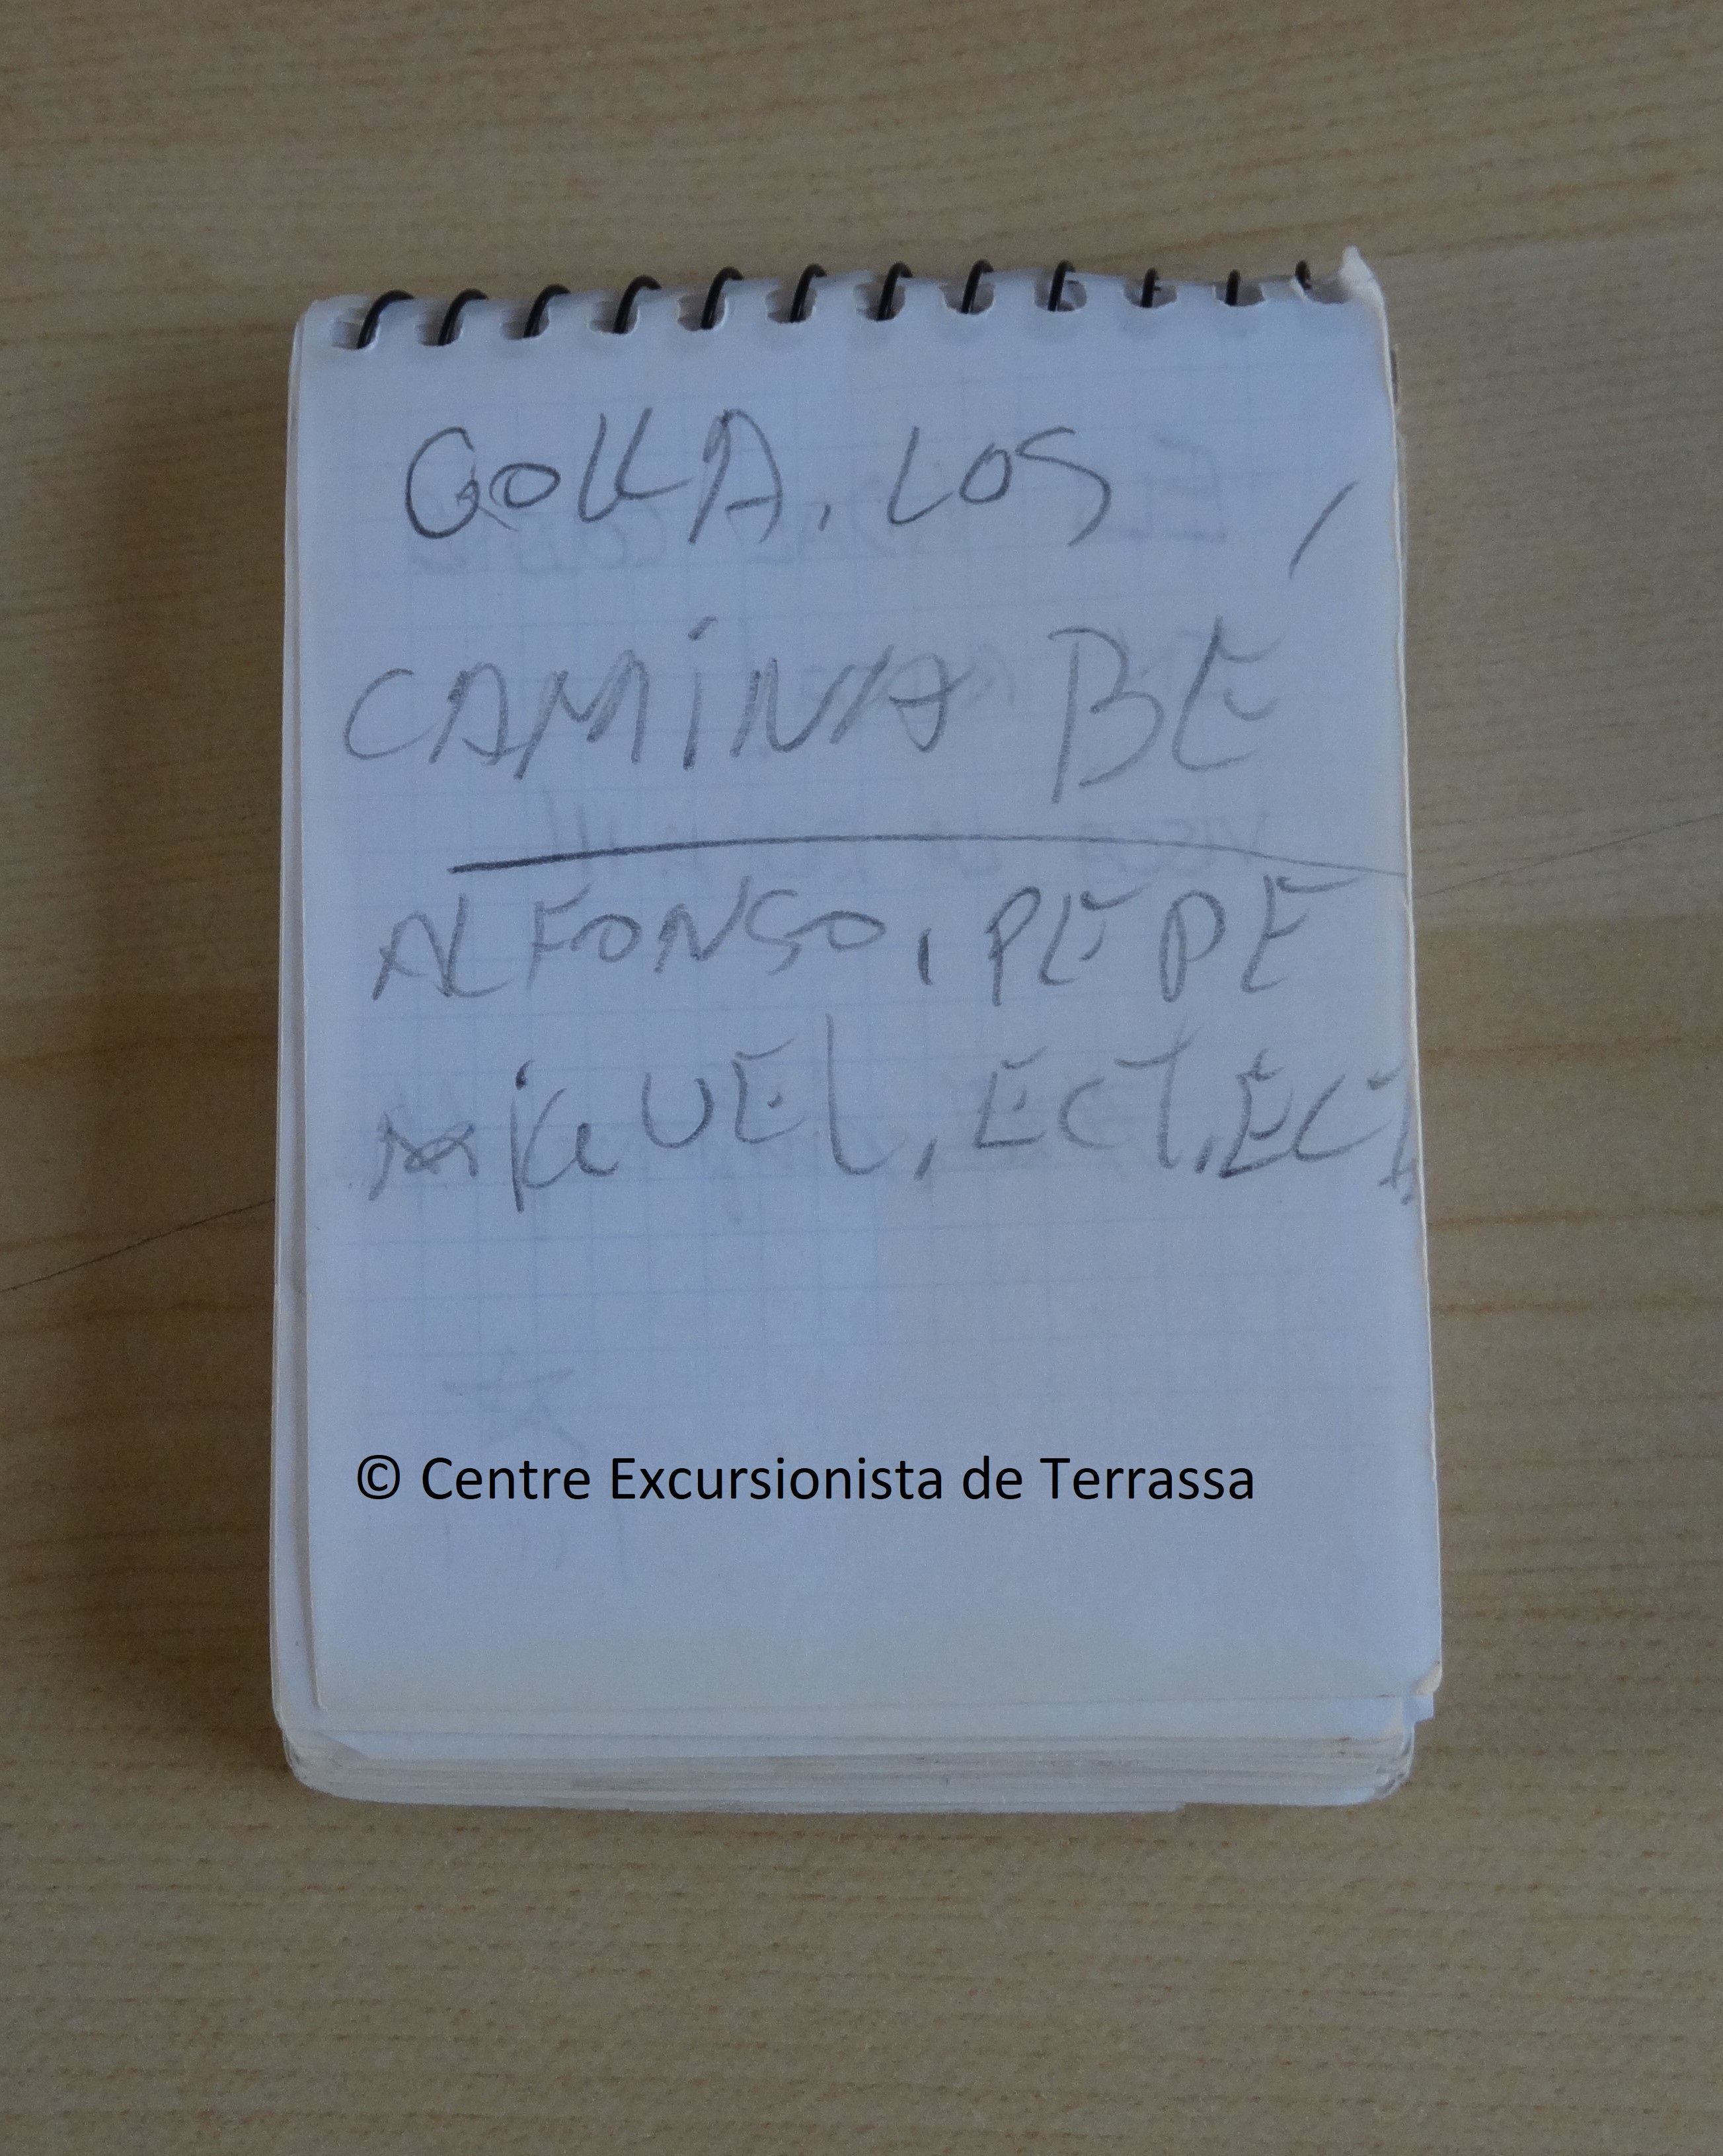 COLLA, LOS
CAMINA BE
ALFONSO, PEPE
MIGUEL, ECT, ECT.
© Centre Excursionista de Terrassa